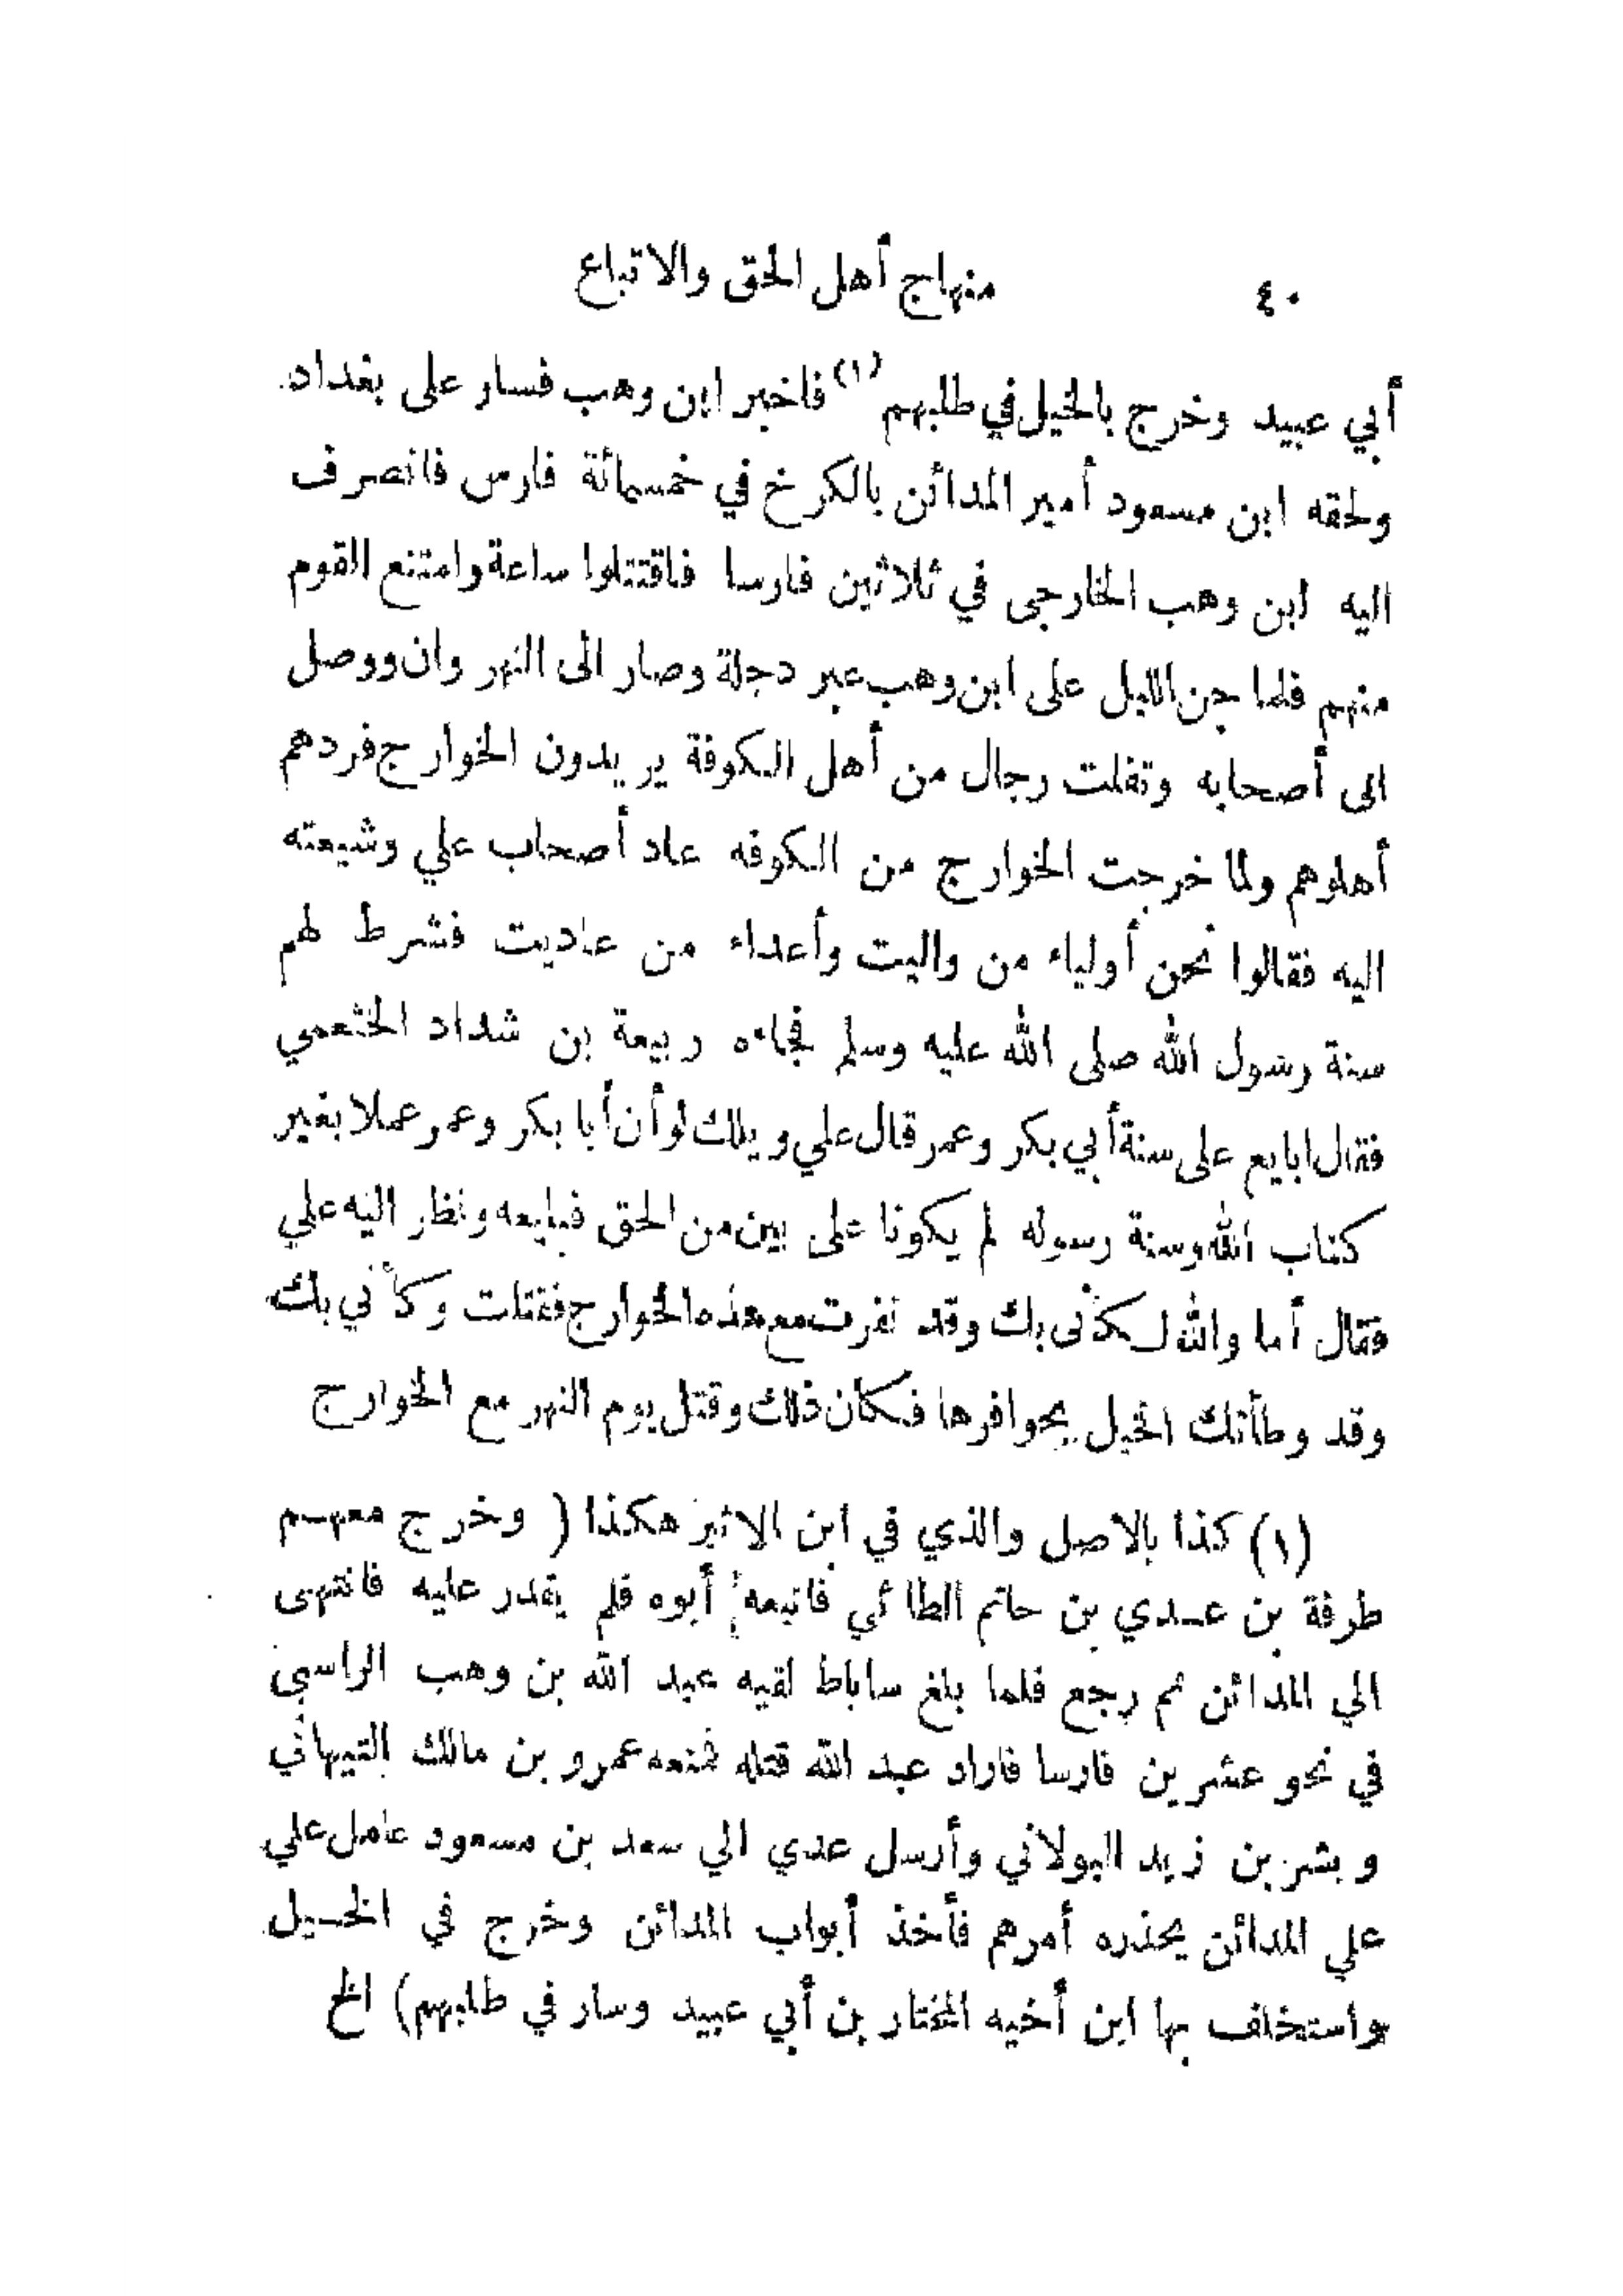 ٤٠ منهاج أهل الحق والاتباع
أبي عبيد وخرج بالخيل في طلبهم (١) فاخبر ابن وهب فسار على بغداد
ولحقه ابن مسعود أمير المدائن بالكرخ في خمسمائة فارس فانصرف
اليه ابن وهب الخارجى في ثلاثين فارسا فاقتتلوا ساعة وامتنع القوم
منهم فلما جن الليل على ابن وهب عبر دجلة وصار الى النهر وان ووصل
الى أصحابه وتفلت رجال من أهل الكوفة يريدون الخوارج فردهم
أهلوهم ولما خرجت الخوارج من الكوفه عاد أصحاب علي وشيعته
اليه فقالوا نحن أولياء من واليت وأعداء من عاديت فشرط لهم
سنة رسول الله صلى الله عليه وسلم فجاءه ربيعة بن شداد الخثعمي
فقال ابايع على سنة أبي بكر وعمر قال علي ويلك لو أن أبا بكر وعمر عملا بغير
كتاب الله وسنة رسوله لم يكونا على بين من الحق فبايعه ونظر اليه علي
فقال أما والله لكأنى بك وقد نفرت مع هذه الخوارج فقتلت وكأني بك
وقد وطأتك الخيل بحوافرها فكان ذلك وقتل يوم النهر مع الخوارج
(١) كذا بالاصل والذي في ابن الاثير هكذا ( وخرج معهم
طرفة بن عدي بن حاتم الطائي فاتبعه أبوه فلم يقدر عليه فانتهى
الي المدائن ثم رجع فلما بلغ ساباط لقيه عبد الله بن وهب الراسبي
في نحو عشرين فارسا فاراد عبد الله قتله فمنعه عمرو بن مالك التيهاني
وبشر بن زيد البولاني وأرسل عدي الي سعد بن مسعود عامل علي
علي المدائن يحذره أمرهم فأخذ أبواب المدائن وخرج في الخيل
واستخلف بها ابن أخيه المختار بن أبي عبيد وسار في طلبهم) الخ